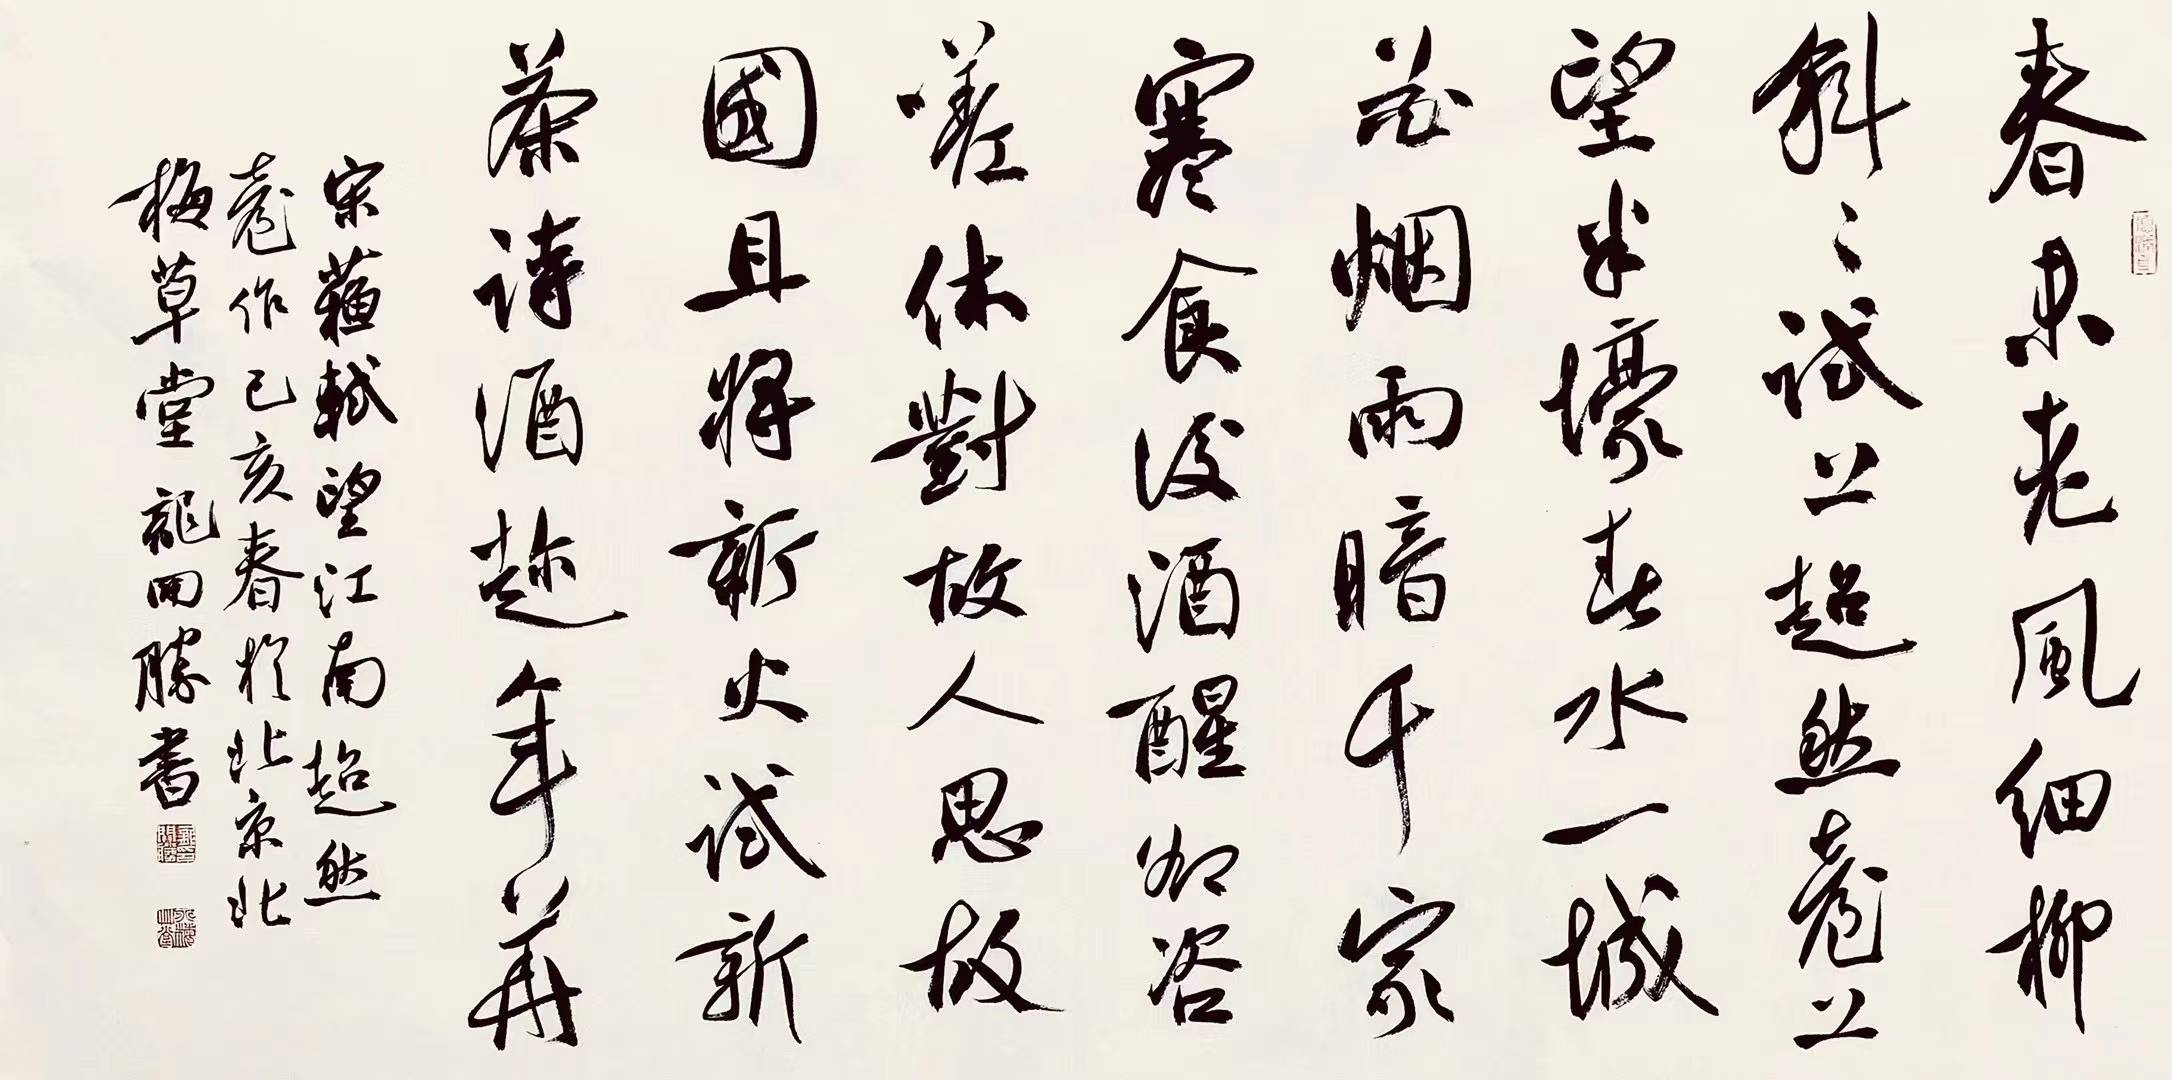 春未老風細柳
斜〻試上超然臺上
望半壕春水一城
花烟雨暗千家
寒食後酒醒卻咨
嗟休對故人思故
國且將新火試新
茶詩酒趁年華
宋蘇軾望江南超然
臺作己亥春於北京北
梅草堂龍田勝書